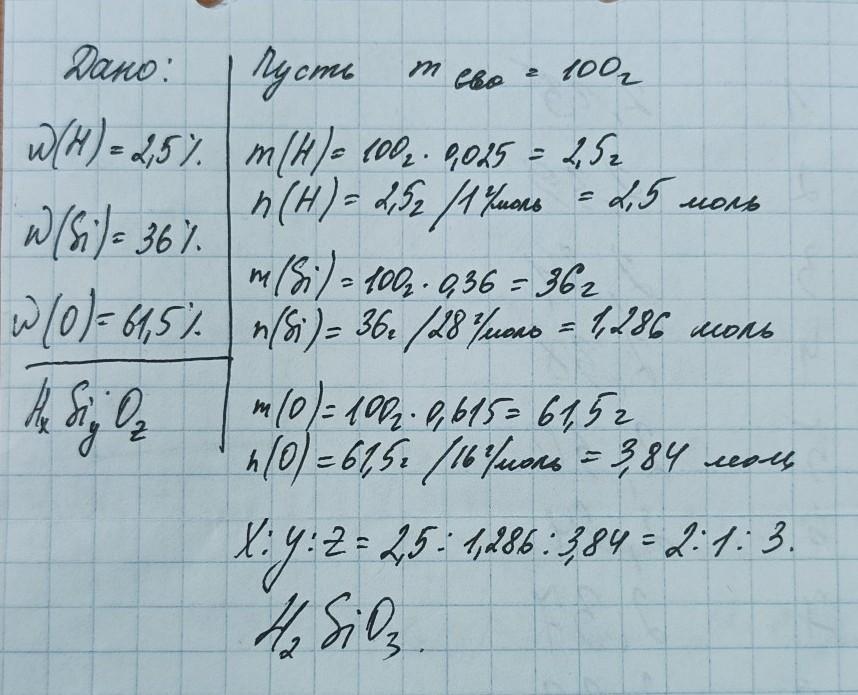 Дано:
w(H) = 2,5%.
w(Si) = 36%.
w(O) = 61,5%.
HxSiyOz
Пусть m св-во = 100г
m(H) = 100г · 0,025 = 2,5г
n(H) = 2,5г /1 г/моль = 2,5 моль
m(Si) = 100г · 0,36 = 36г
n(Si) = 36г /28 г/моль = 1,286 моль
m(O) = 100г · 0,615 = 61,5г
n(O) = 61,5г /16 г/моль = 3,84 моль
X : y : z = 2,5 : 1,286 : 3,84 = 2 : 1 : 3.
H2SiO3.